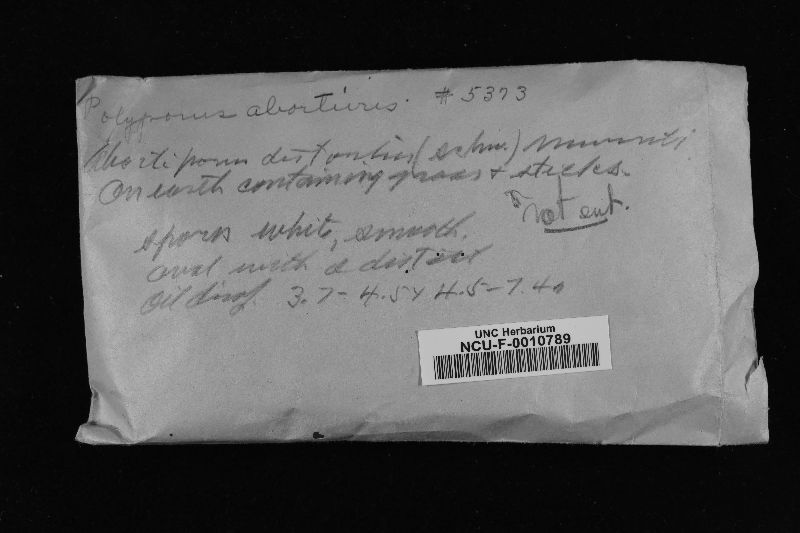 Polyporus abortivus. # 5373
Abortiporus distortus (Schw.) Murrill.
On earth containing grass & sticks.
Not ent.
spores white, smooth.
oval with a distinct
oil drop. 3.7-4.5 x 4.5-7.4
UNC Herbarium
NCU-F-0010789